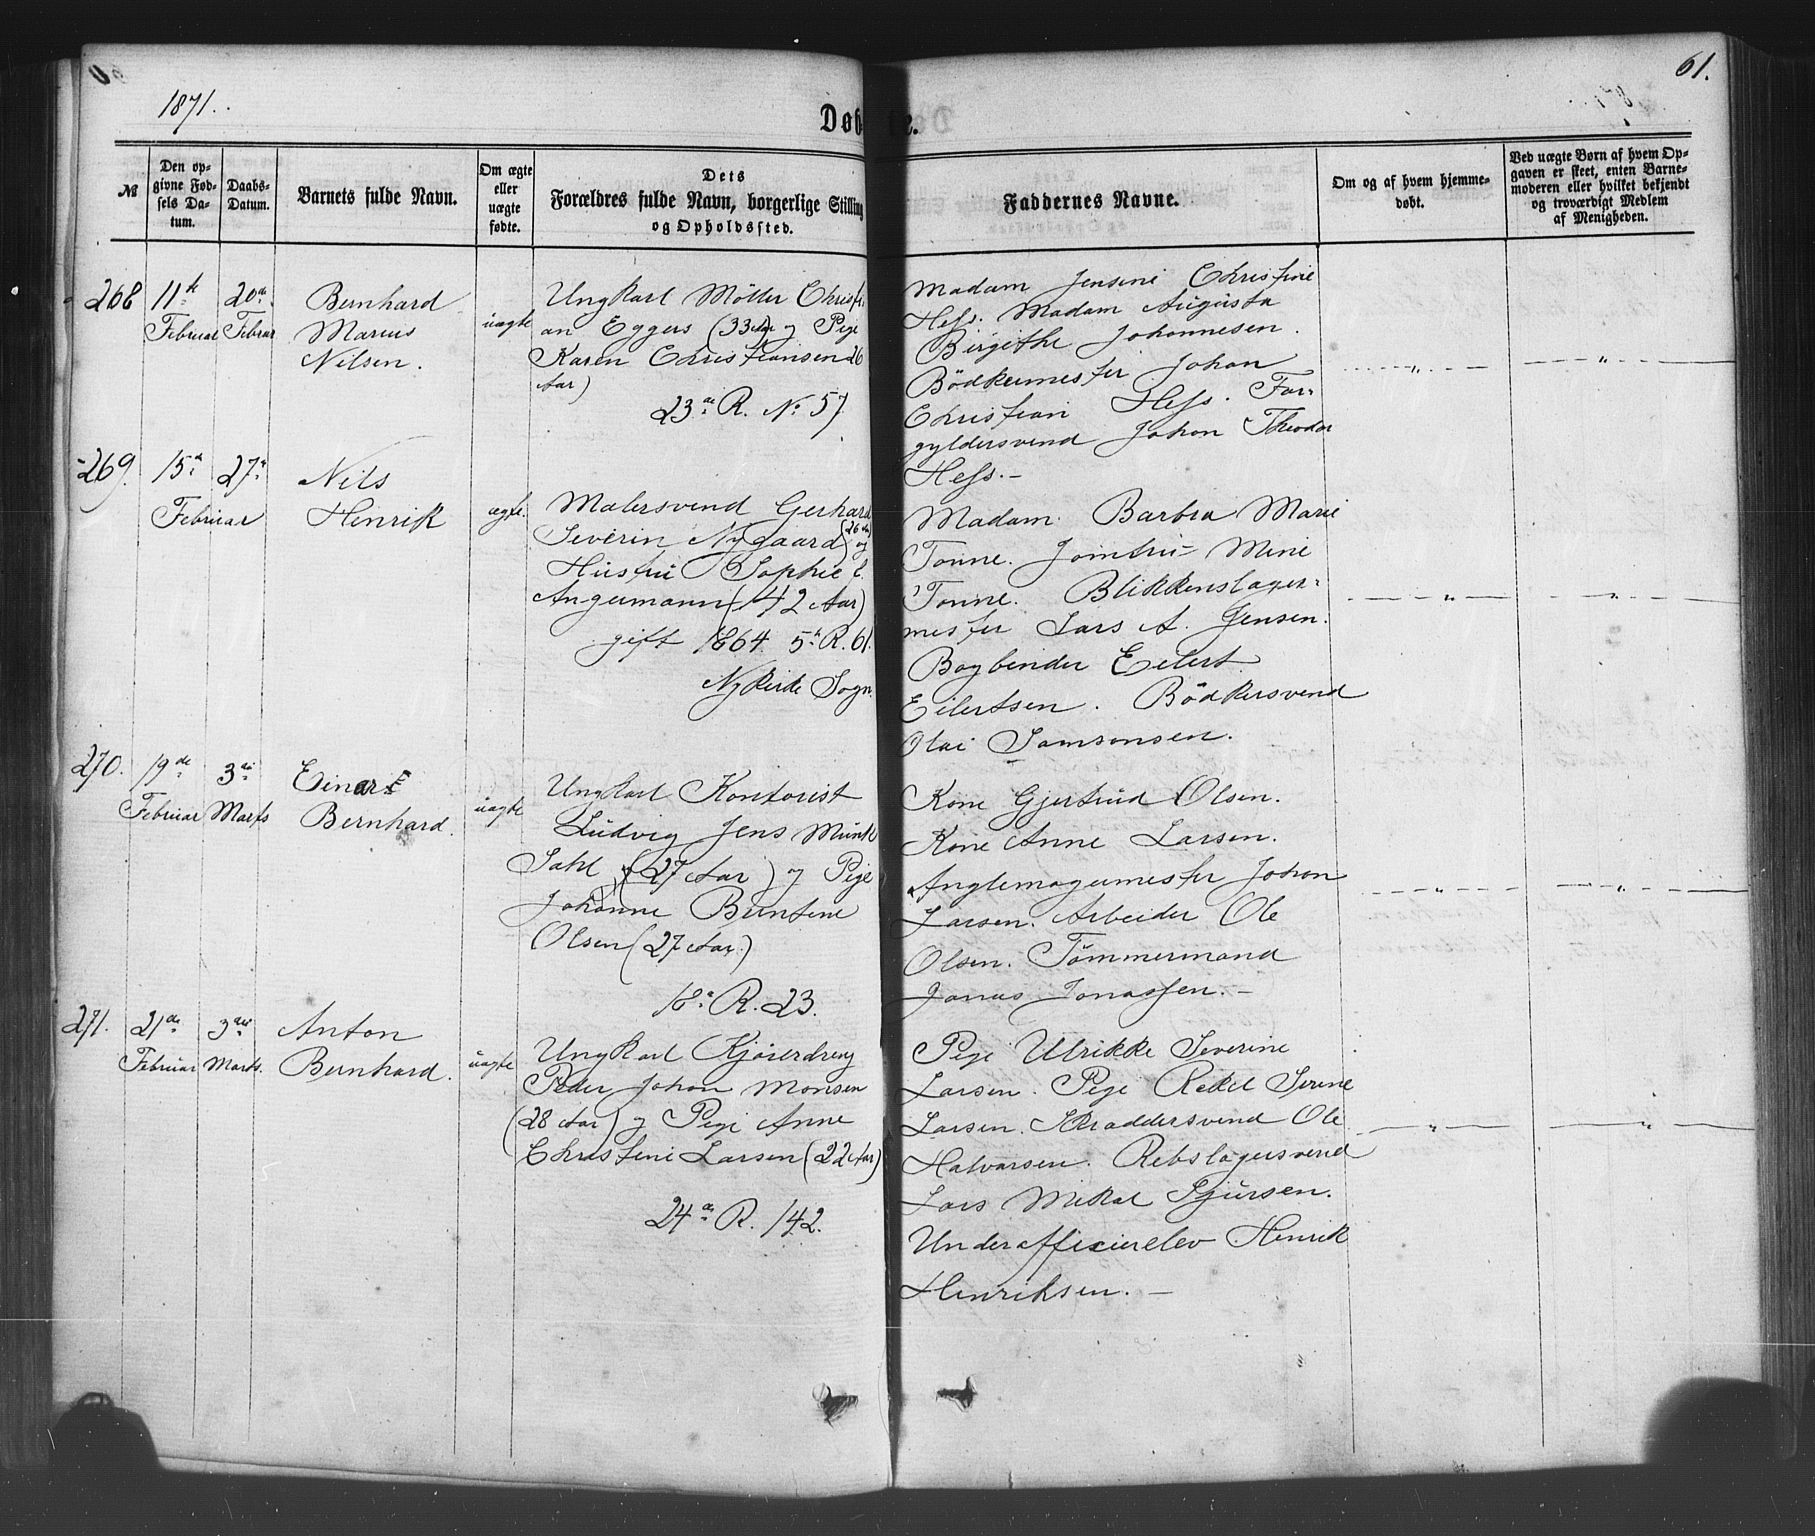 61.
1871.
Døbte.
№
Den op-
givne Fød-
sels Da-
tum.
Daabs-
Datum.
Barnets fulde Navn.
Om ægte
eller
uægte
fødte.
Dets
Forældres fulde Navn, borgerlige Stilling
og Opholdssted.
Faddernes Navne.
Om og af hvem hjemme-
døbt.
Ved uægte Børn af hvem Op-
gaven er skeet, enten Barne-
moderen eller hvilket bekjendt
og troværdigt Medlem
af Menigheden.
268 11te Februar
20de Februar
Bernhard
Marius
Nilsen.
uægte
Ungkarl Møller Christi
an Eggers (33 Aar) og Pige
Karen Christiansen 26
Aar)
23de R. No 57
Madam Jensine Christine
Hess. Madam Augusta
Birgithe Johannesen.
Bödkermester Johan
Christian Hess. For-
gyldersvend Johan Theodor
Hess.-
269. 15de Februar
27de
Nils
Henrik
ægte.
Malersvend Gerhard
Severin Nygaard (26 Aar) og
Hustru Sophie
Angermann (42 Aar)
gift 1864. 5te R. 61.
Nykirke Sogn.
Madam Barbra Marie
Tonne. Jomfru Mine
Tonne. Blikkenslager-
mester Lars A. Jensen.
Bogbinder Eilert
Eilertsen. Bödkersvend
Olai Samsonsen.
270. 19de Februar
3die Marts
Einar
Bernhard.
uægte
Ungkarl Kontorist
Ludvig Jens Munk
Dahl (27 Aar) og Pige
Johanne Berntine
Olsen (27 Aar.)
18de R. 23.
Kone Gjertrud Olsen.
Kone Anne Larsen.
Anglemagermester Johan
Larsen. Arbeider Ole
Olsen. Tömmermand
Jonas Jonassen.-
271. 21de Februar
3die Marts.
Anton
Bernhard.
uægte
Ungkarl Kjöierdreng
Peder Johan Monsen
(28 Aar) og Pige Anne
Christine Larsen (22 Aar)
24de R. 142.
Pige Ulrikke Severine
Larsen. Pige Rakel Serine
Larsen. Skraddersvend Ole
Halvorsen. Rebslagersvend
Lars Mikal Sjursen.
Underofficierelev Henrik
Henriksen.-